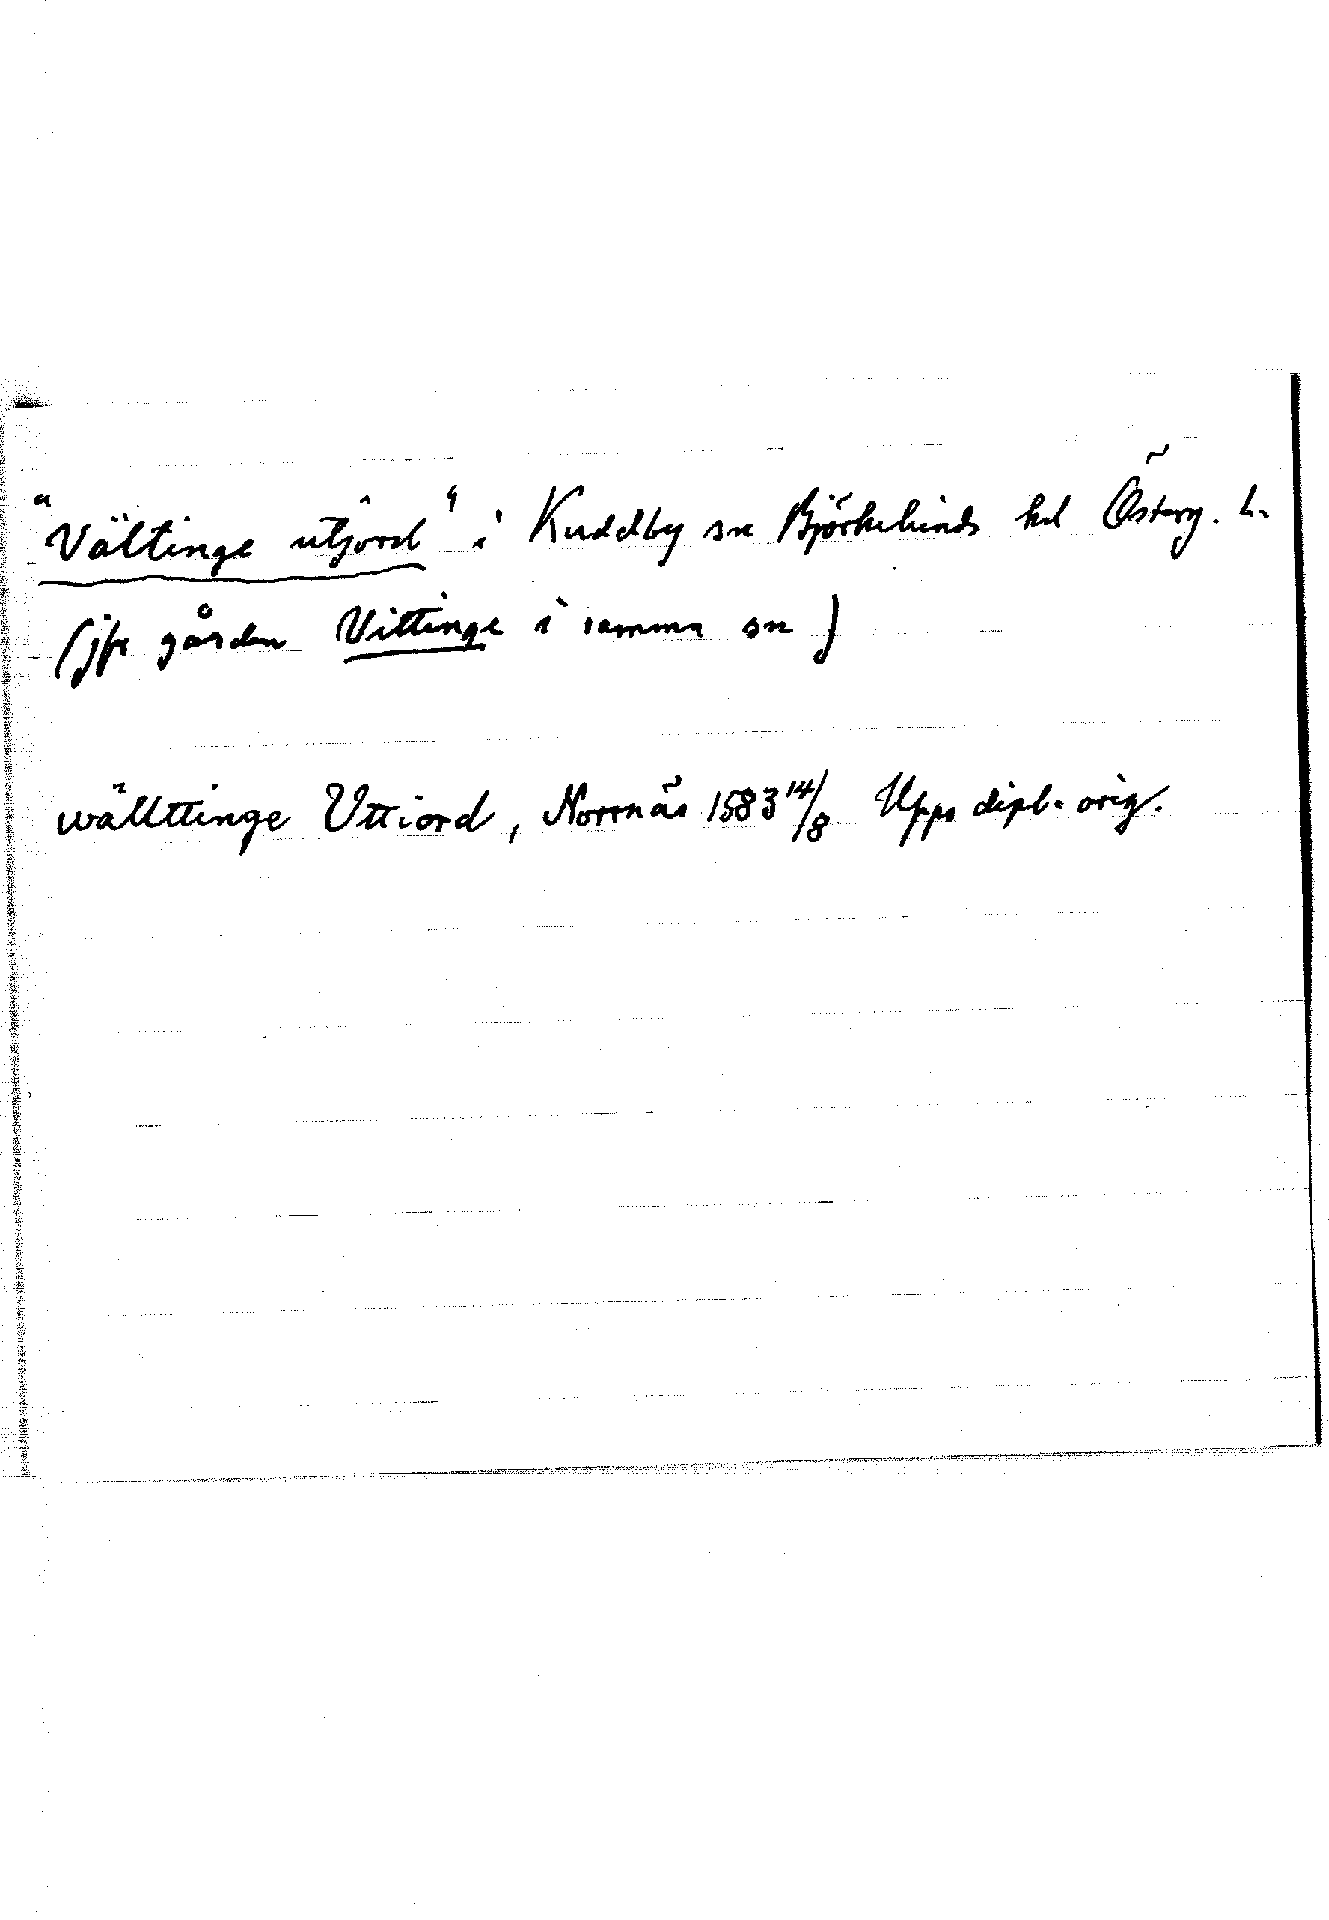 "Vältinge utjord" i Kuddby sn Björkekinds hd Österg. L.
(jfr gården Vittinge i samma sn)
wällttinge Uttiord, Norrnäs 1583 14/8 Upps dipl. orig.